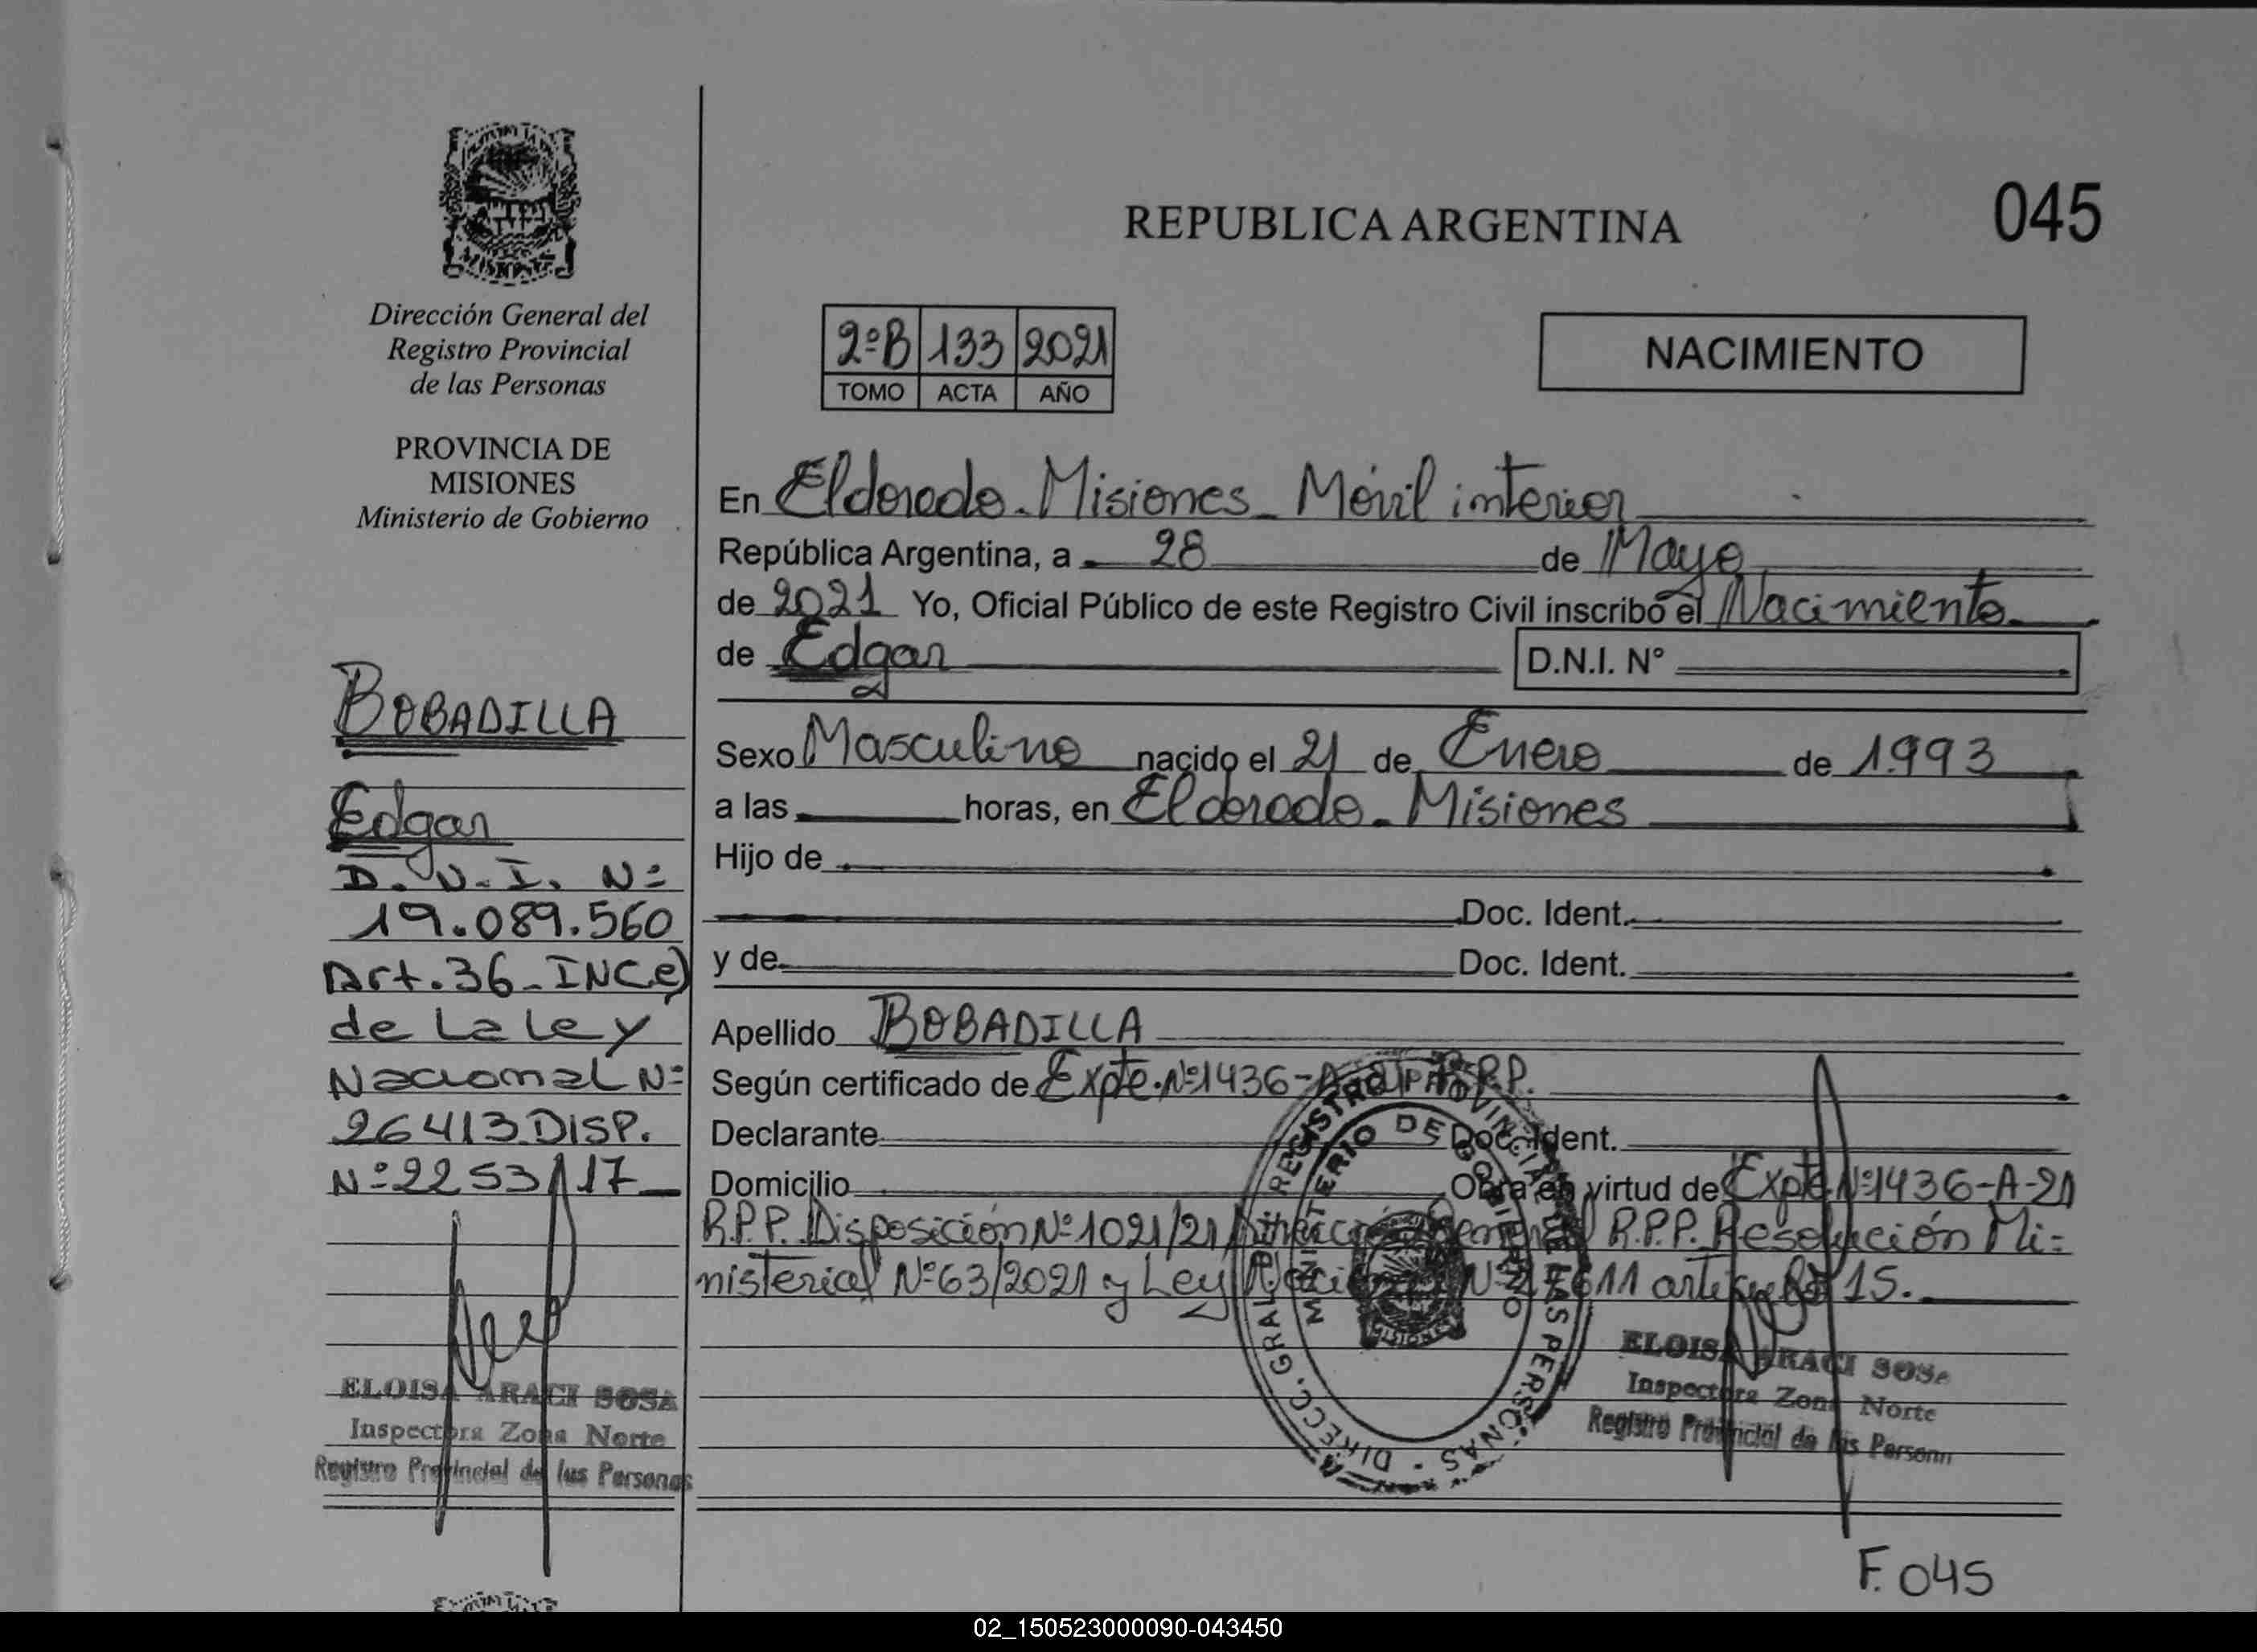 MISIONES
Dirección General del
Registro Provincial
de las Personas
PROVINCIA DE
MISIONES
Ministerio de Gobierno
BOBADILLA
Edgar
D.N.I. Nº
19.089.560
Art. 36 - INC e)
de La Ley
Nacional Nº
26413 DISP.
Nº 2253/17
ELOISA ARACI SOSA
Inspectora Zona Norte
Registro Provincial de las Personas
REPUBLICA ARGENTINA
045
2ºB 133 2021
TOMO ACTA AÑO
NACIMIENTO
En Eldorado - Misiones - Móvil interior
República Argentina, a 28 de Mayo
de 2021 Yo, Oficial Público de este Registro Civil inscribo el Nacimiento
de Edgar D.N.I. N°
Sexo Masculino nacido el 21 de Enero de 1993
a las horas, en Eldorado - Misiones
Hijo de
Doc. Ident.
y de Doc. Ident.
Apellido BOBADILLA
Según certificado de Expte. Nº 1436-A-21 R.P.P.
Declarante Doc. Ident.
Domicilio Obra en virtud de Expte Nº 1436-A-21
R.P.P. Disposición Nº 1021/21 Dirección General R.P.P. Resolución Mi=
nisterial Nº 63/2021 y Ley Nacional Nº 27611 artículo 15.
DIRECC. GRAL. REGISTRO PROVINCIAL DE LAS PERSONAS
MINISTERIO DE GOBIERNO
MISIONES
ELOISA ARACI SOSA
Inspectora Zona Norte
Registro Provincial de las Person
F. 045
02_150523000090-043450